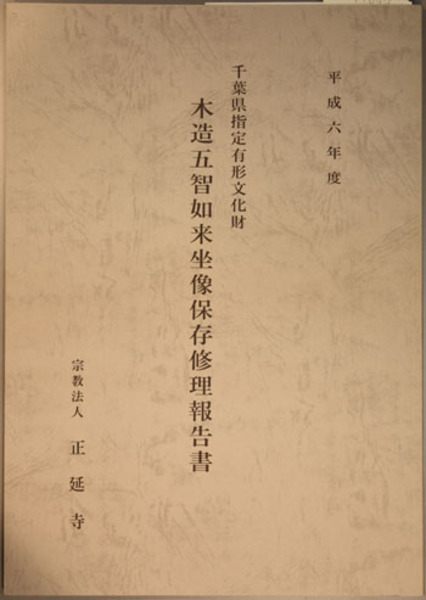 平成六年度
千葉県指定有形文化財
木造五智如来坐像保存修理報告書
宗教法人 正延寺